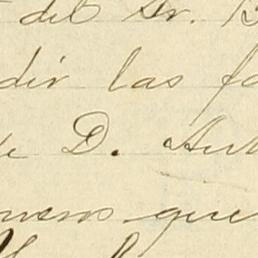 del Sr. B
dir las fa
de D. Ant
menos que